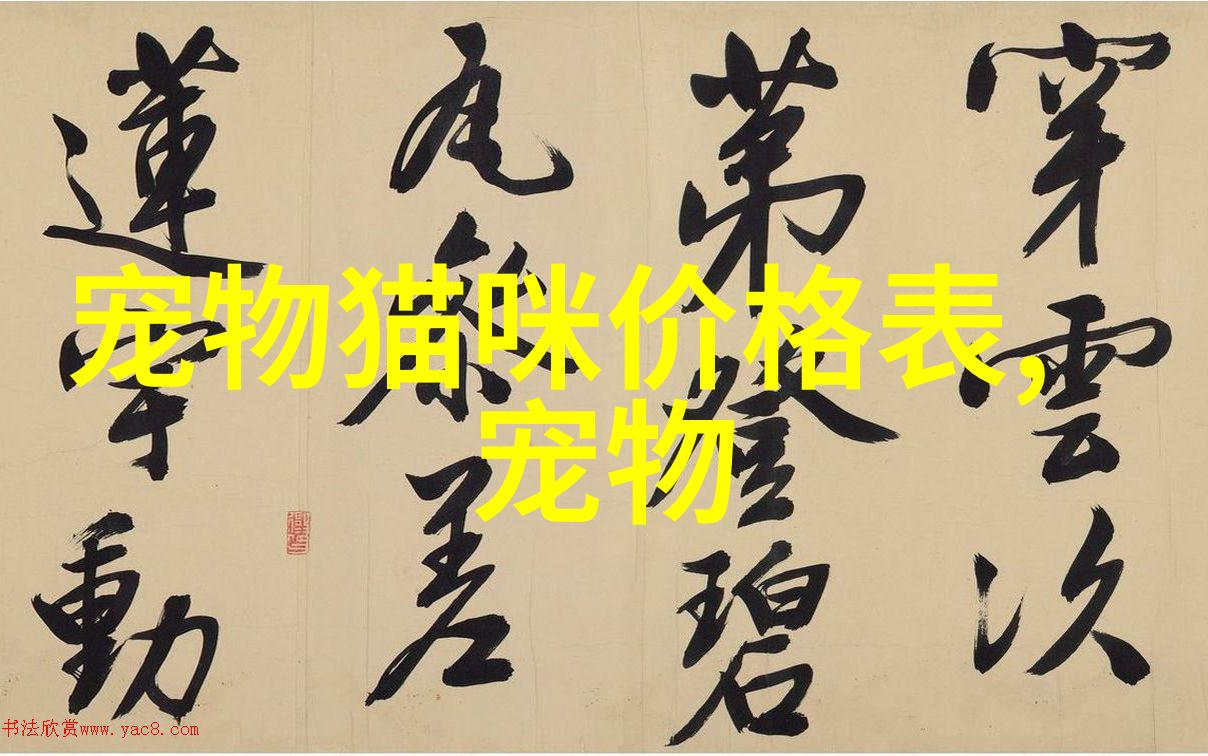 穿雲次
第登碧
瓦參差
蓮宇動
宠物猫咪价格表,
宠物
书法欣赏www.yac8.com